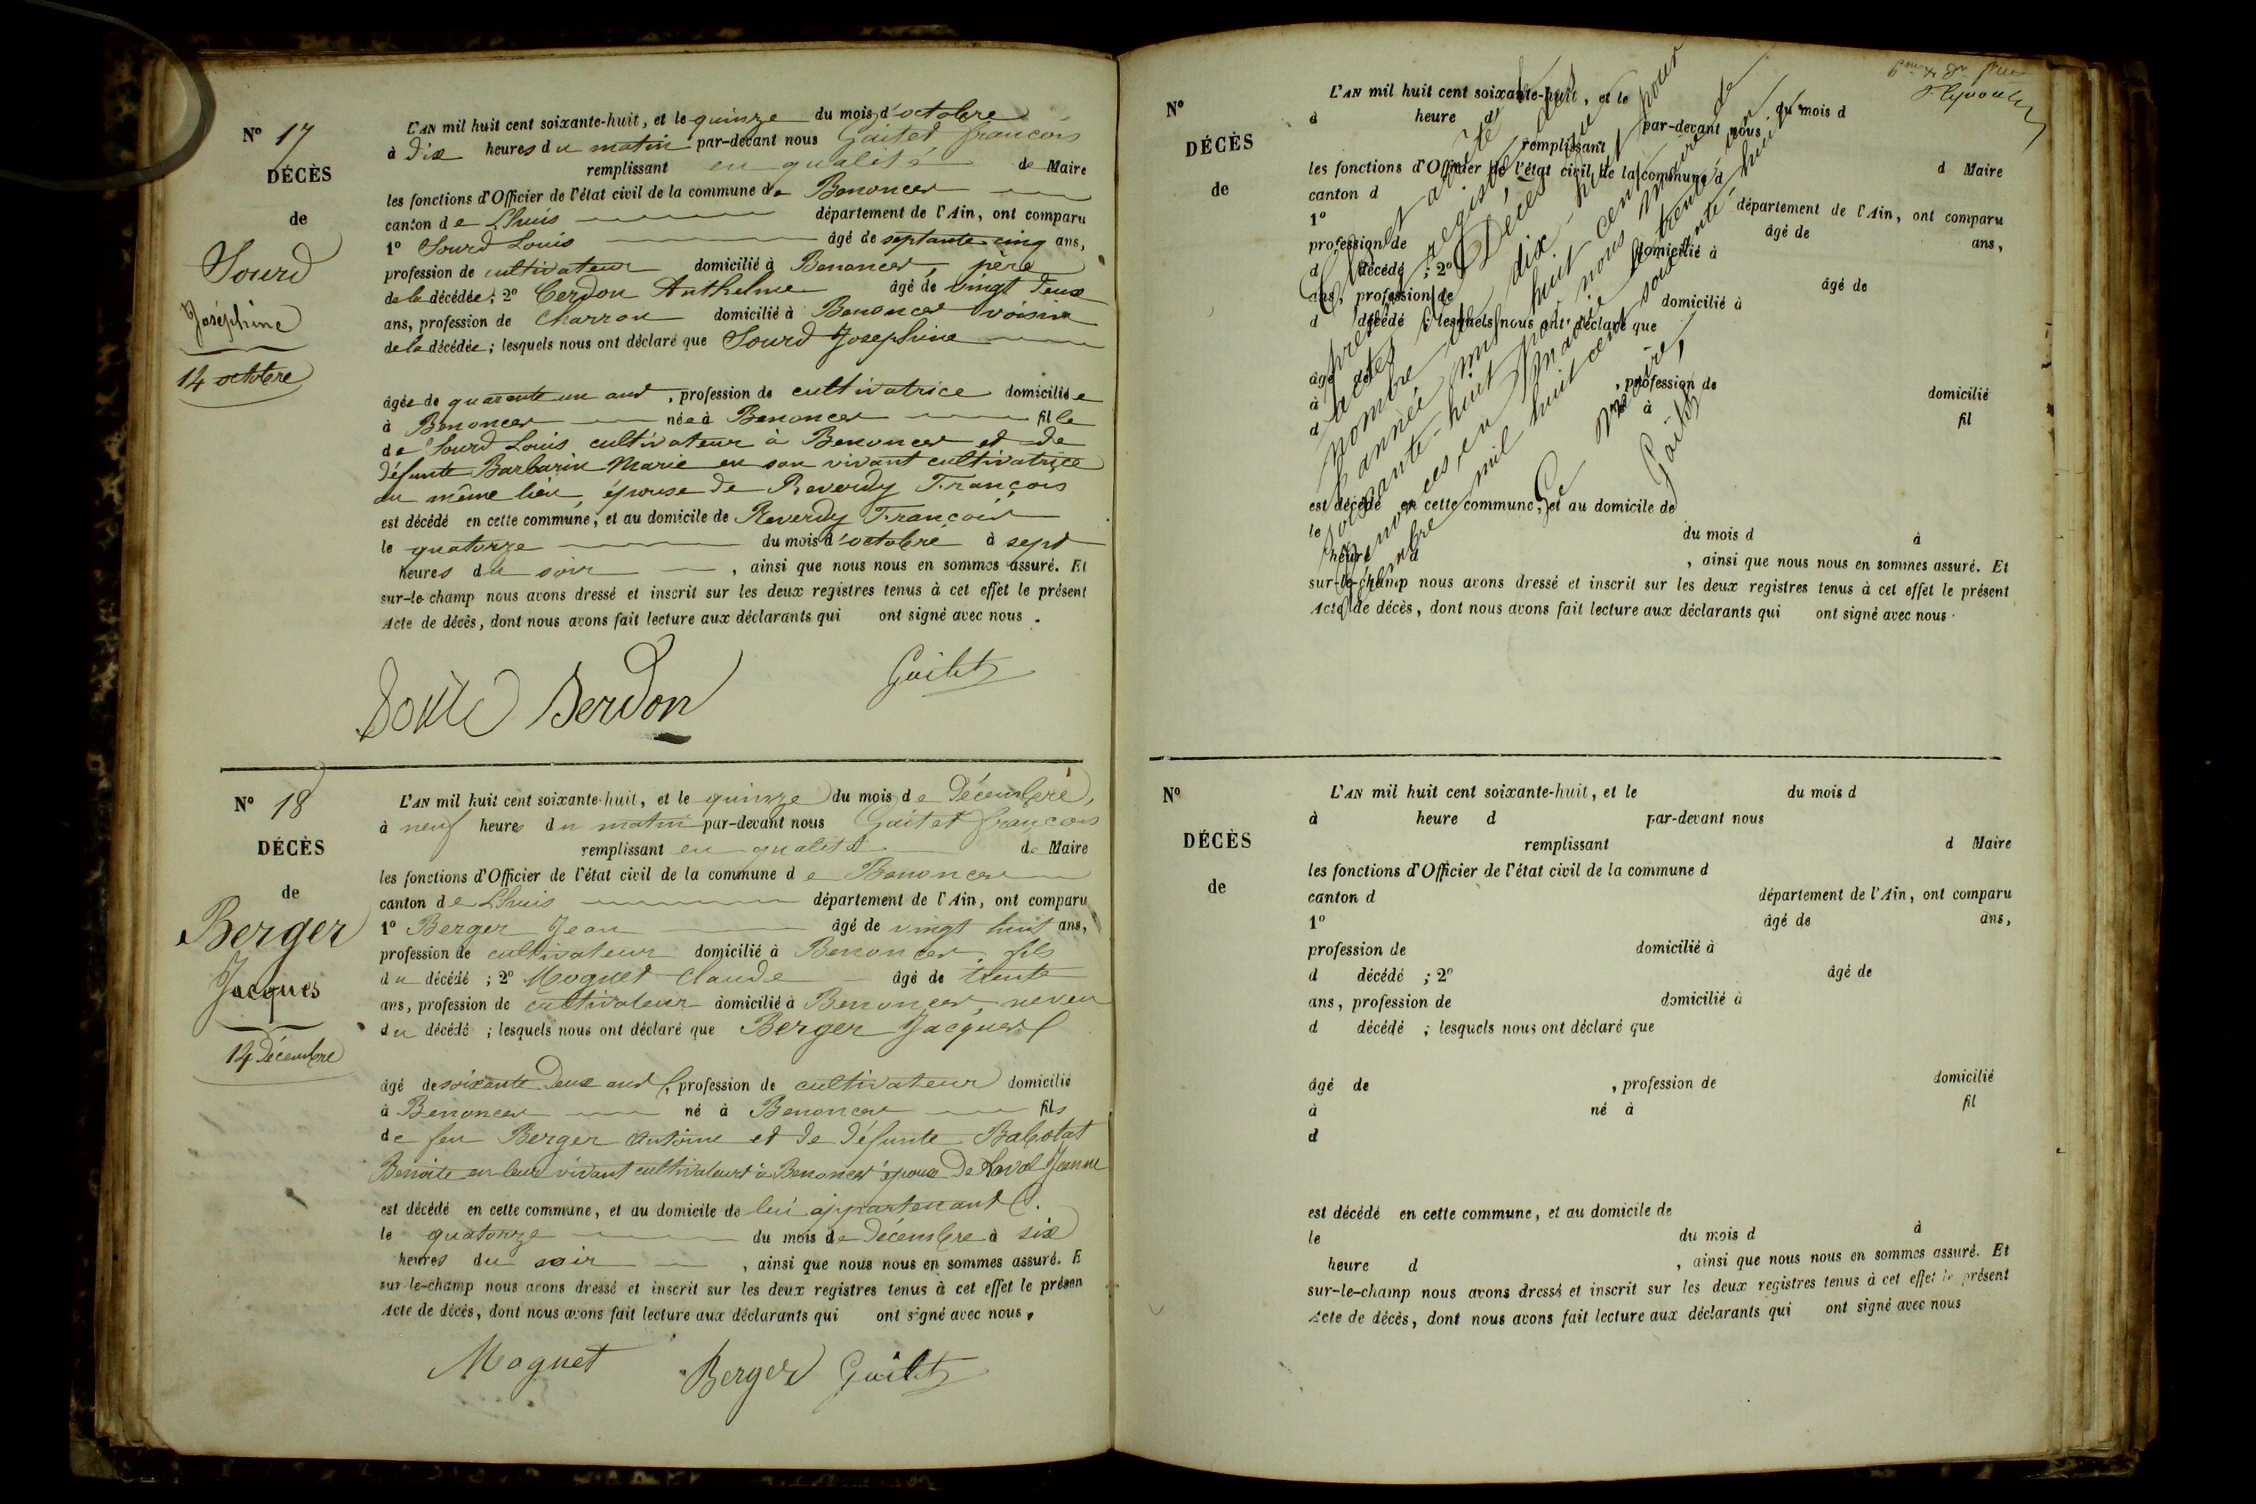 N° 17
DÉCÈS
de
Sourd
Joséphine
14 octobre
L'AN mil huit cent soixante-huit, et le quinze du mois d'octobre
à dix heures du matin par-devant nous Gaitet françois
remplissant en qualité de Maire
les fonctions d'Officier de l'état civil de la commune de Benonces
canton de Lhuis département de l'Ain, ont comparu
1° Sourd Louis âgé de septante cinq ans,
profession de cultivateur domicilié à Benonces, père
de la décédée; 2° Cerdon Anthelme âgé de vingt deux
ans, profession de charron domicilié à Benonces voisin
de la décédée; lesquels nous ont déclaré que Sourd Josephine
âgée de quarante un ans, profession de cultivatrice domiciliée
à Benonces née à Benonces fille
de Sourd Louis cultivateur à Benonces et de
défunte Barbarin Marie en son vivant cultivatrice
au même lieu, épouse de Reverdy François
est décédé en cette commune, et au domicile de Reverdy François
le quatorze du mois d'octobre à sept
heures du soir, ainsi que nous nous en sommes assuré. Et
sur-le-champ nous avons dressé et inscrit sur les deux registres tenus à cet effet le présent
Acte de décès, dont nous avons fait lecture aux déclarants qui ont signé avec nous.
Gaitet
N° 18
DÉCÈS
de
Berger
Jacques
14 Décembre
L'AN mil huit cent soixante-huit, et le quinze du mois de Décembre,
à neuf heures du matin par-devant nous Gaitet françois
remplissant en qualité de Maire
les fonctions d'Officier de l'état civil de la commune de Benonces
canton de Lhuis département de l'Ain, ont comparu
1° Berger Jean âgé de vingt huit ans,
profession de cultivateur domicilié à Benonces, fils
du décédé; 2° Moguet Claude âgé de trente
ans, profession de cultivateur domicilié à Benonces, neveu
du décédé; lesquels nous ont déclaré que Berger Jacques
âgé de soixante Deux ans, profession de cultivateur domicilié
à Benonces né à Benonces fils
de feu Berger Antoine et de défunte Babolat
Benoite en leur vivant cultivateurs à Benonces époux De Jeanne
est décédé en cette commune, et au domicile de lui appartenant.
le quatorze du mois de Décembre à six
heures du soir, ainsi que nous nous en sommes assuré. E
sur-le-champ nous avons dressé et inscrit sur les deux registres tenus à cet effet le présen
Acte de décès, dont nous avons fait lecture aux déclarants qui ont signé avec nous.
Moguet Berger Gaitet
N°
DÉCÈS
de
L'AN mil huit cent soixante-huit, et le du mois d
à heure d par-devant nous
remplissant d Maire
les fonctions d'Officier de l'état civil de la commune d
canton d département de l'Ain, ont comparu
1° âgé de ans,
profession de domicilié à
d décédé ; 2° âgé de
ans, profession de domicilié à
d décédé ; lesquels nous ont déclaré que
âgé de , profession de domicilié
à né à fil
d
est décédé en cette commune, et au domicile de
le du mois d à
heure d , ainsi que nous nous en sommes assuré. Et
sur-le-champ nous avons dressé et inscrit sur les deux registres tenus à cet effet le présent
Acte de décès, dont nous avons fait lecture aux déclarants qui ont signé avec nous.
Clos et arrêté le
présent registre des
actes de Décès au
nombre de dix-huit pour
l'année mil huit cent
soixante-huit par nous maire de
Benonces, en mairie le trente un
décembre mil huit cent soixante huit
Le maire,
Gaitet
N°
DÉCÈS
de
L'AN mil huit cent soixante-huit, et le du mois d
à heure d par-devant nous
remplissant d Maire
les fonctions d'Officier de l'état civil de la commune d
canton d département de l'Ain, ont comparu
1° âgé de ans,
profession de domicilié à
d décédé ; 2° âgé de
ans, profession de domicilié à
d décédé ; lesquels nous ont déclaré que
âgé de , profession de domicilié
à né à fil
d
est décédé en cette commune, et au domicile de
le du mois d à
heure d , ainsi que nous nous en sommes assuré. Et
sur-le-champ nous avons dressé et inscrit sur les deux registres tenus à cet effet le présent
Acte de décès, dont nous avons fait lecture aux déclarants qui ont signé avec nous